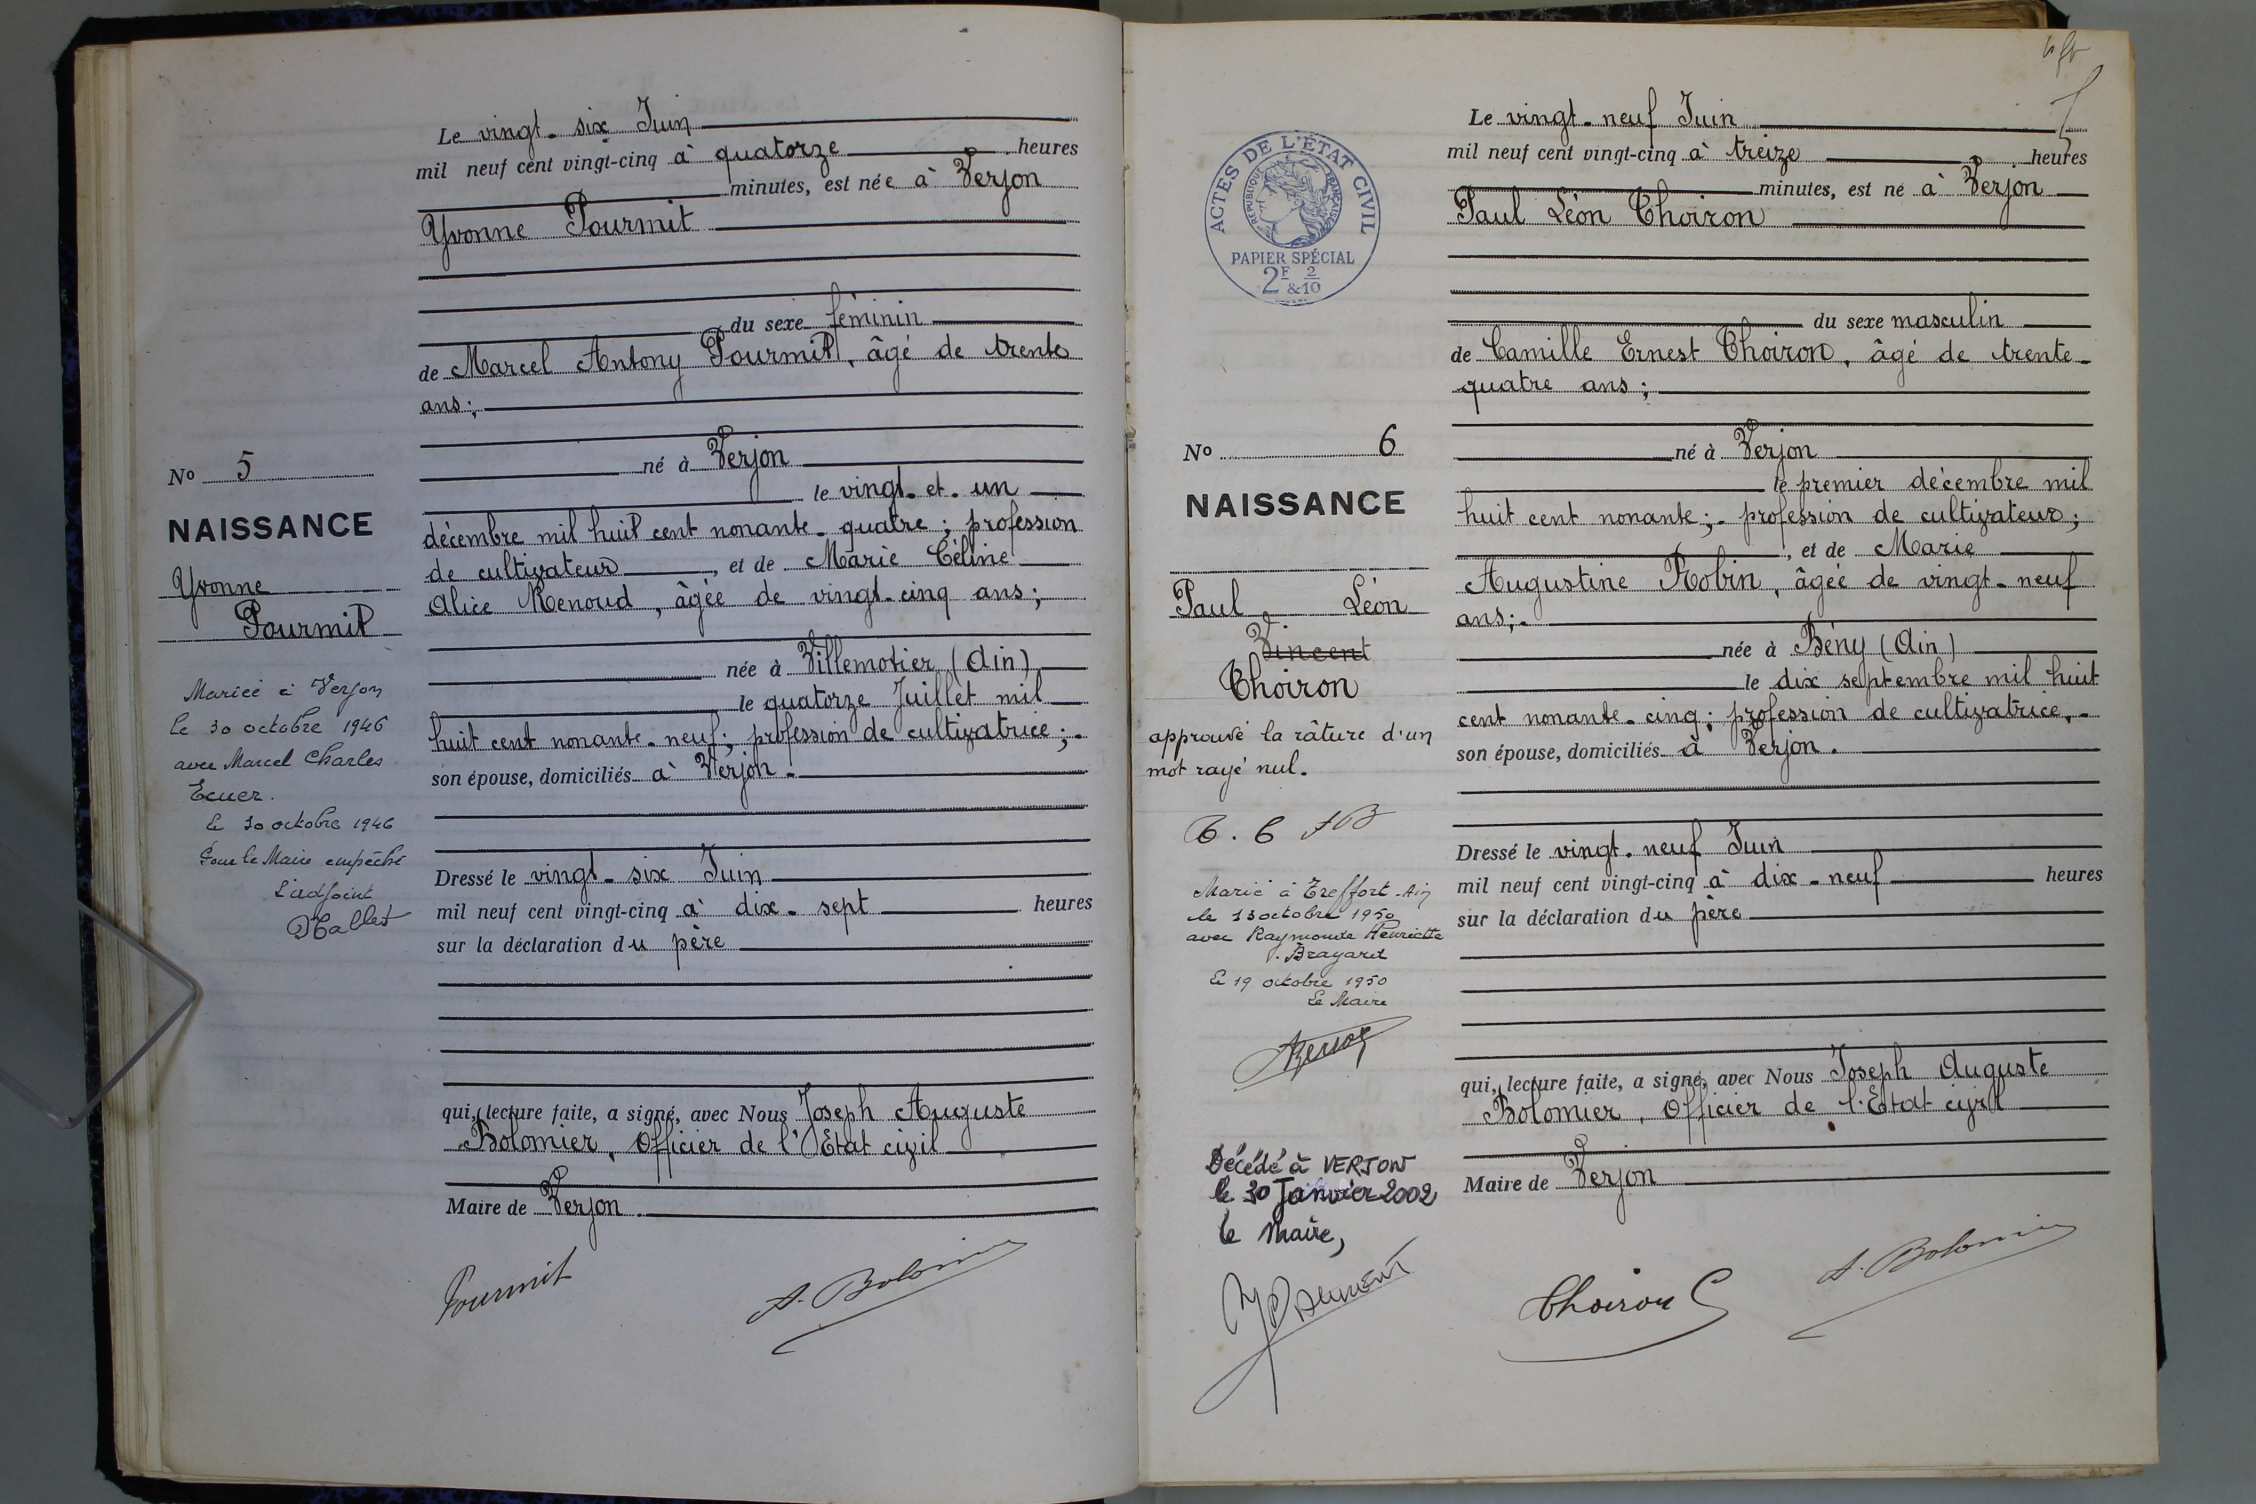 Le vingt-six Juin
mil neuf cent vingt-cinq à quatorze heures
minutes, est née à Verjon
Yvonne Pourmit
du sexe féminin
de Marcel Antony Pourmit, âgé de trente
ans;
né à Verjon
le vingt-et-un
décembre mil huit cent nonante-quatre; profession
de cultivateur, et de Marie Céline
Alice Renoud, âgée de vingt-cinq ans;
née à Villemotier (Ain)
le quatorze Juillet mil
huit cent nonante-neuf; profession de cultivatrice;-
son épouse, domiciliés à Verjon.
Dressé le vingt-six Juin
mil neuf cent vingt-cinq à dix-sept heures
sur la déclaration du père
qui, lecture faite, a signé, avec Nous Joseph Auguste
Bolomier, Officier de l'Etat civil
Maire de Verjon
Pourmit
A. Bolomier
No 5
NAISSANCE
Yvonne
Pourmit
Mariée à Verjon
le 30 octobre 1946
avec Marcel Charles
Ecuer.
Le 30 octobre 1946
Pour le Maire empêché
L'adjoint
Le vingt-neuf Juin
mil neuf cent vingt-cinq à treize heures
minutes, est né à Verjon
Paul Léon Thoiron
du sexe masculin
de Camille Ernest Thoiron, âgé de trente-
quatre ans;
né à Verjon
le premier décembre mil
huit cent nonante;- profession de cultivateur;
, et de Marie
Augustine Robin, âgée de vingt-neuf
ans;-
née à Bény (Ain)
le dix septembre mil huit
cent nonante-cinq; profession de cultivatrice,-
son épouse, domiciliés à Verjon.
Dressé le vingt-neuf Juin
mil neuf cent vingt-cinq à dix-neuf heures
sur la déclaration du père
qui, lecture faite, a signé, avec Nous Joseph Auguste
Bolomier, Officier de l'Etat civil
Maire de Verjon
Thoiron C
A. Bolomier
ACTES DE L'ÉTAT CIVIL
RÉPUBLIQUE FRANÇAISE
PAPIER SPÉCIAL
2F 2
&10
No 6
NAISSANCE
Paul Léon
Vincent
Thoiron
approuvé la râture d'un
mot rayé nul.
T. C AB
Marié à Treffort-Ain
le 13 octobre 1950
avec Raymonde Henriette
Brayard
Le 19 octobre 1950
Le Maire
Décédé à VERJON
le 30 Janvier 2002
le Maire,